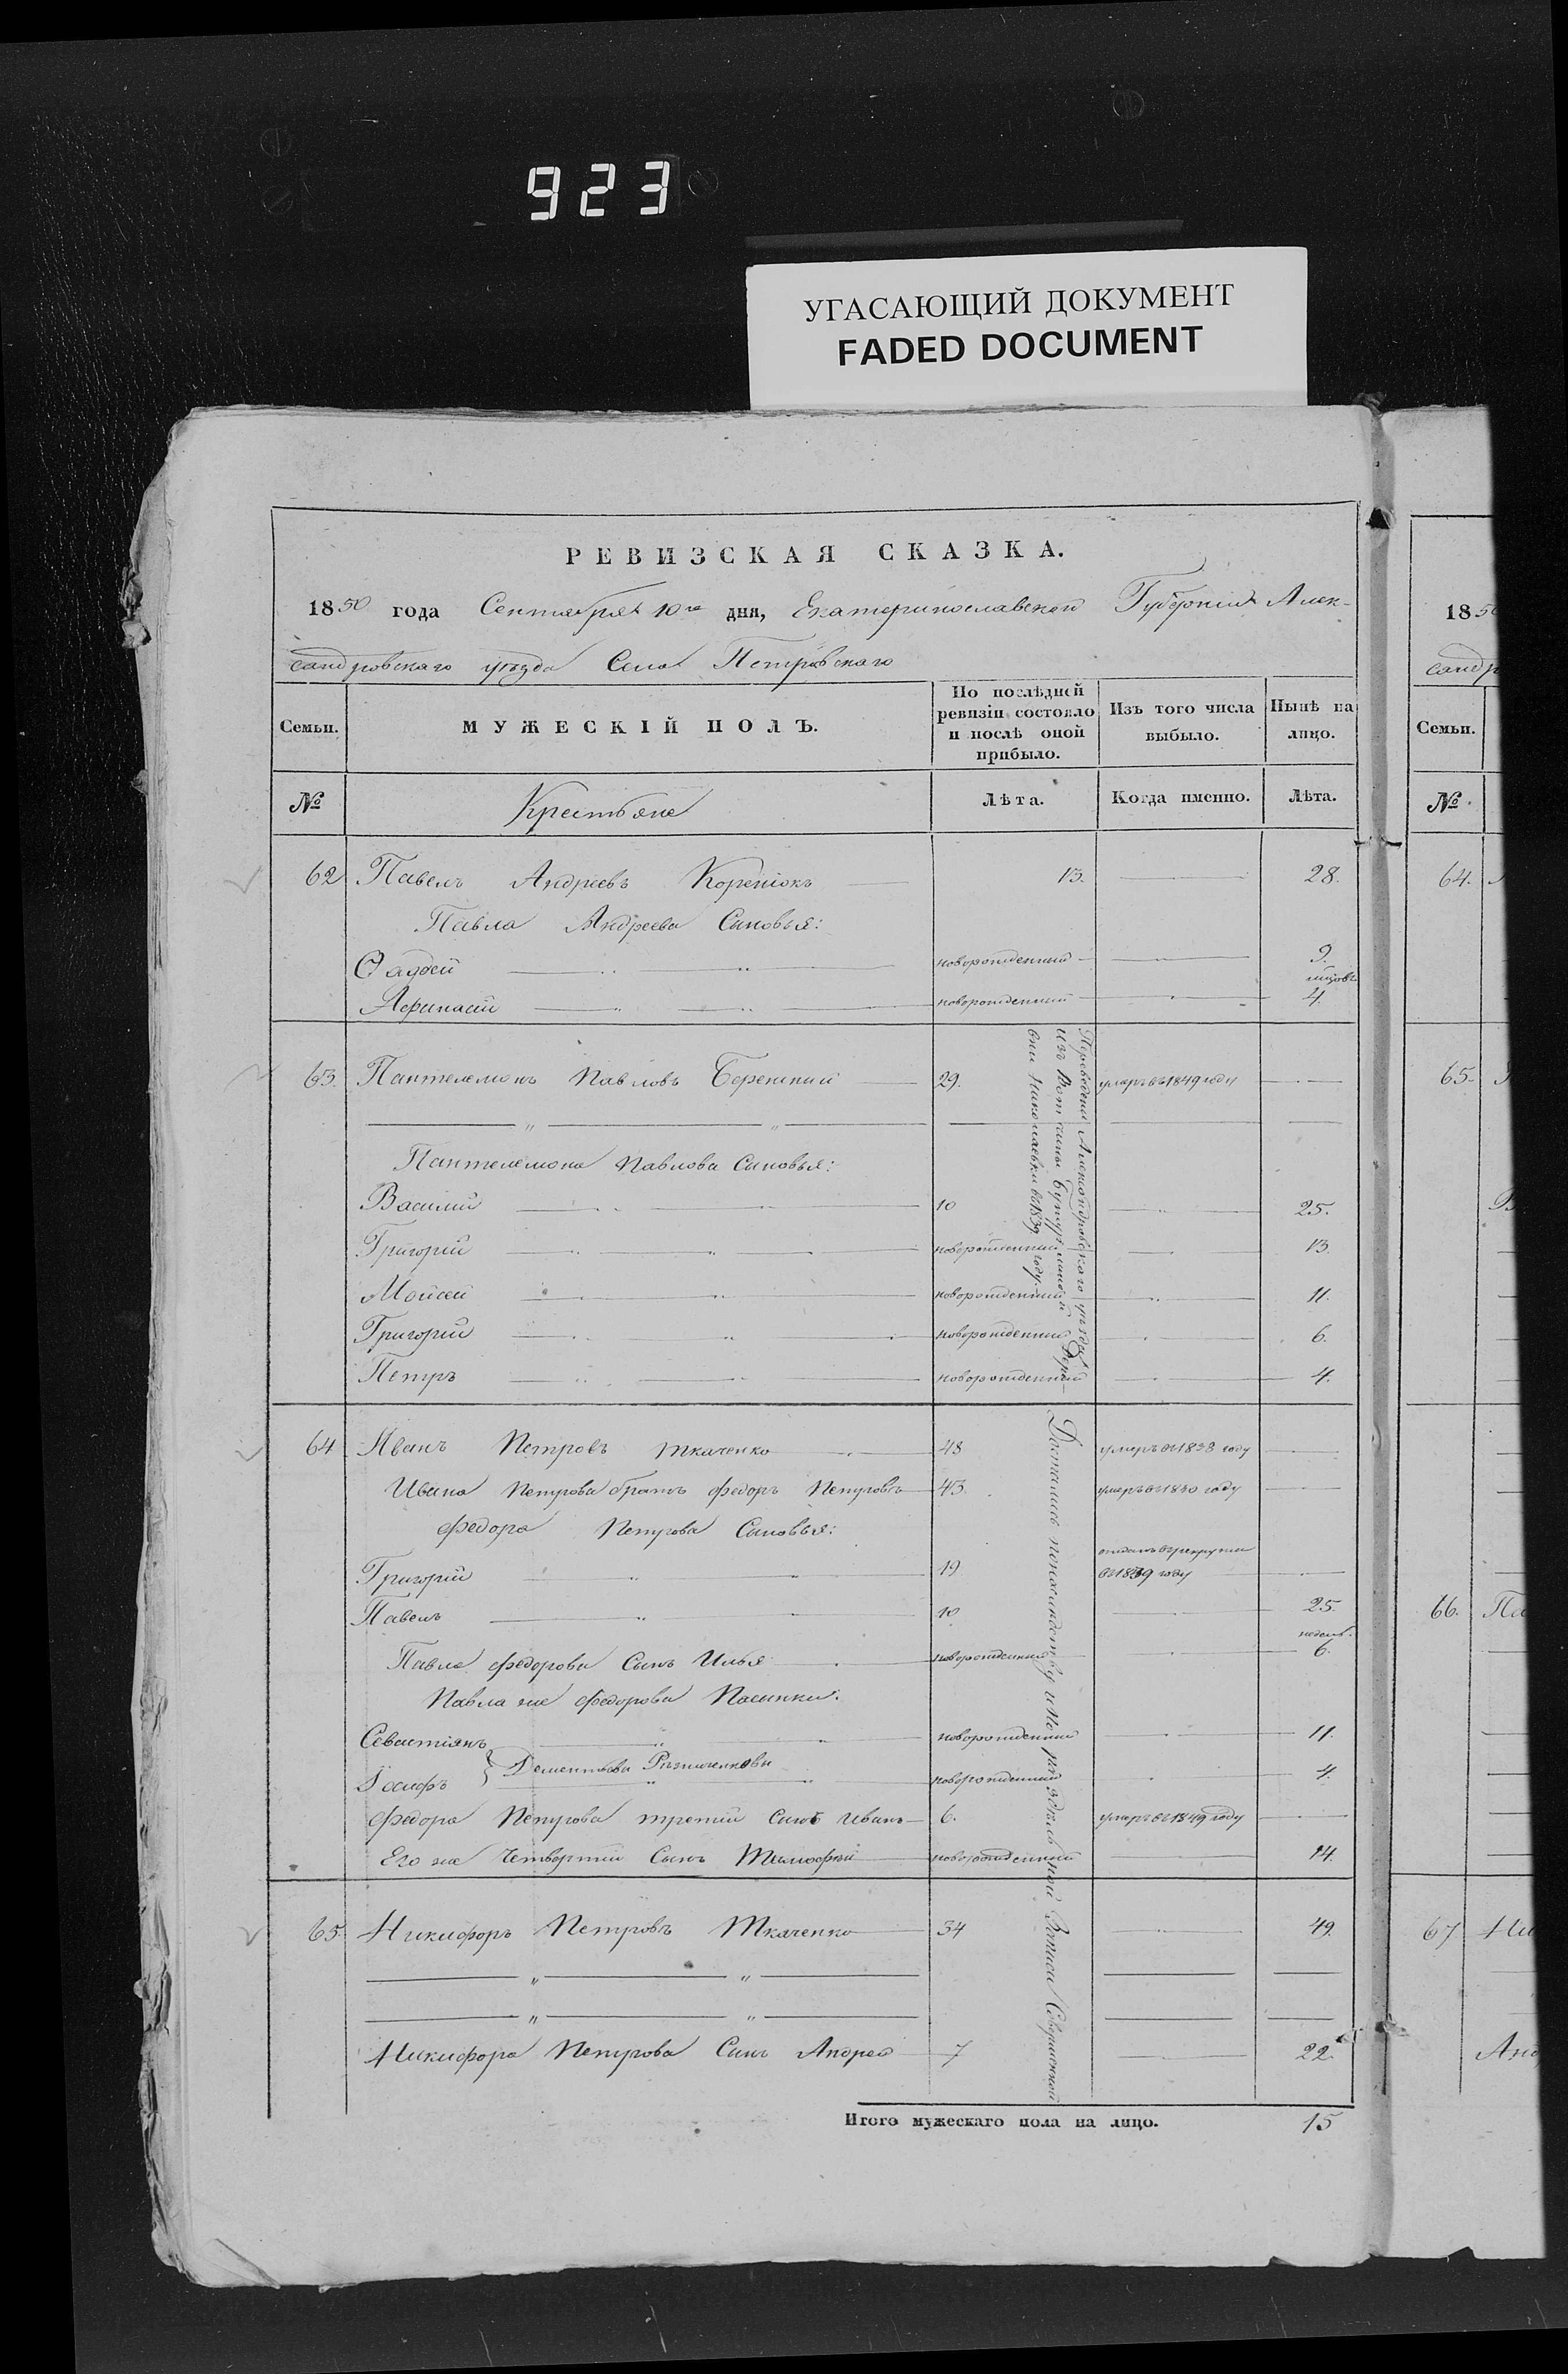 923
УГАСАЮЩИЙ ДОКУМЕНТ
FADED DOCUMENT
РЕВИЗСКАЯ СКАЗКА.
1850 года Сентября 10го дня, Екатеринославской Губерніи Алек-
сандровскаго уѣзда Села Петровскаго
Семьи.
МУЖЕСКІЙ ПОЛЪ.
По послѣдней ревизіи состояло и послѣ оной прибыло.
Изъ того числа выбыло.
Нынѣ на лицо.
№
Крестьяне
Лѣта.
Когда именно.
Лѣта.
62 Павелъ Андреевъ 13. 28.
Павла Андреева Сыновья:
Фаддей новорожденный 9.
Афанасій новорожденный 4.
63. Пантелемонъ Павловъ 29. умеръ въ 1849 году
Пантелемона Павлова Сыновья:
Василій 10 25.
Григорій новорожденный 13.
Моисей новорожденный 11.
Григорій новорожденный 6.
Петръ новорожденный 4.
Переведены Александровскаго уѣзда
изъ Вотчины Дере-
вни Николаевки въ 1839 году.
64 Иванъ Петровъ Ткаченко 48 умеръ въ 1838 году
Ивана Петрова братъ Федоръ Петровъ 43. умеръ въ году
Федора Петрова Сыновья:
Григорій 19 отданъ въ рекруты
въ 1839 году
Павелъ 10 25.
недель.
Павла Федорова Сынъ Илья новорожденный 6.
Павла же Федорова Пасынки:
Севастіянъ новорожденный 11.
Дементьевы
Іосифъ новорожденный 4.
Федора Петрова третій Сынъ Иванъ 6. умеръ въ 1849 году
Его же Четвертый Сынъ Тимофей новорожденный 14.
65. Никифоръ Петровъ Ткаченко 34 49.
Никифора Петрова Сынъ Андрей 7 22.
Достались по наслѣдству и по раздѣльной Записи Совершенной
Итого мужескаго пола на лицо. 15
1850
сандр
Семьи.
№.
64.
65.
66. Па
67 Ни
Анд